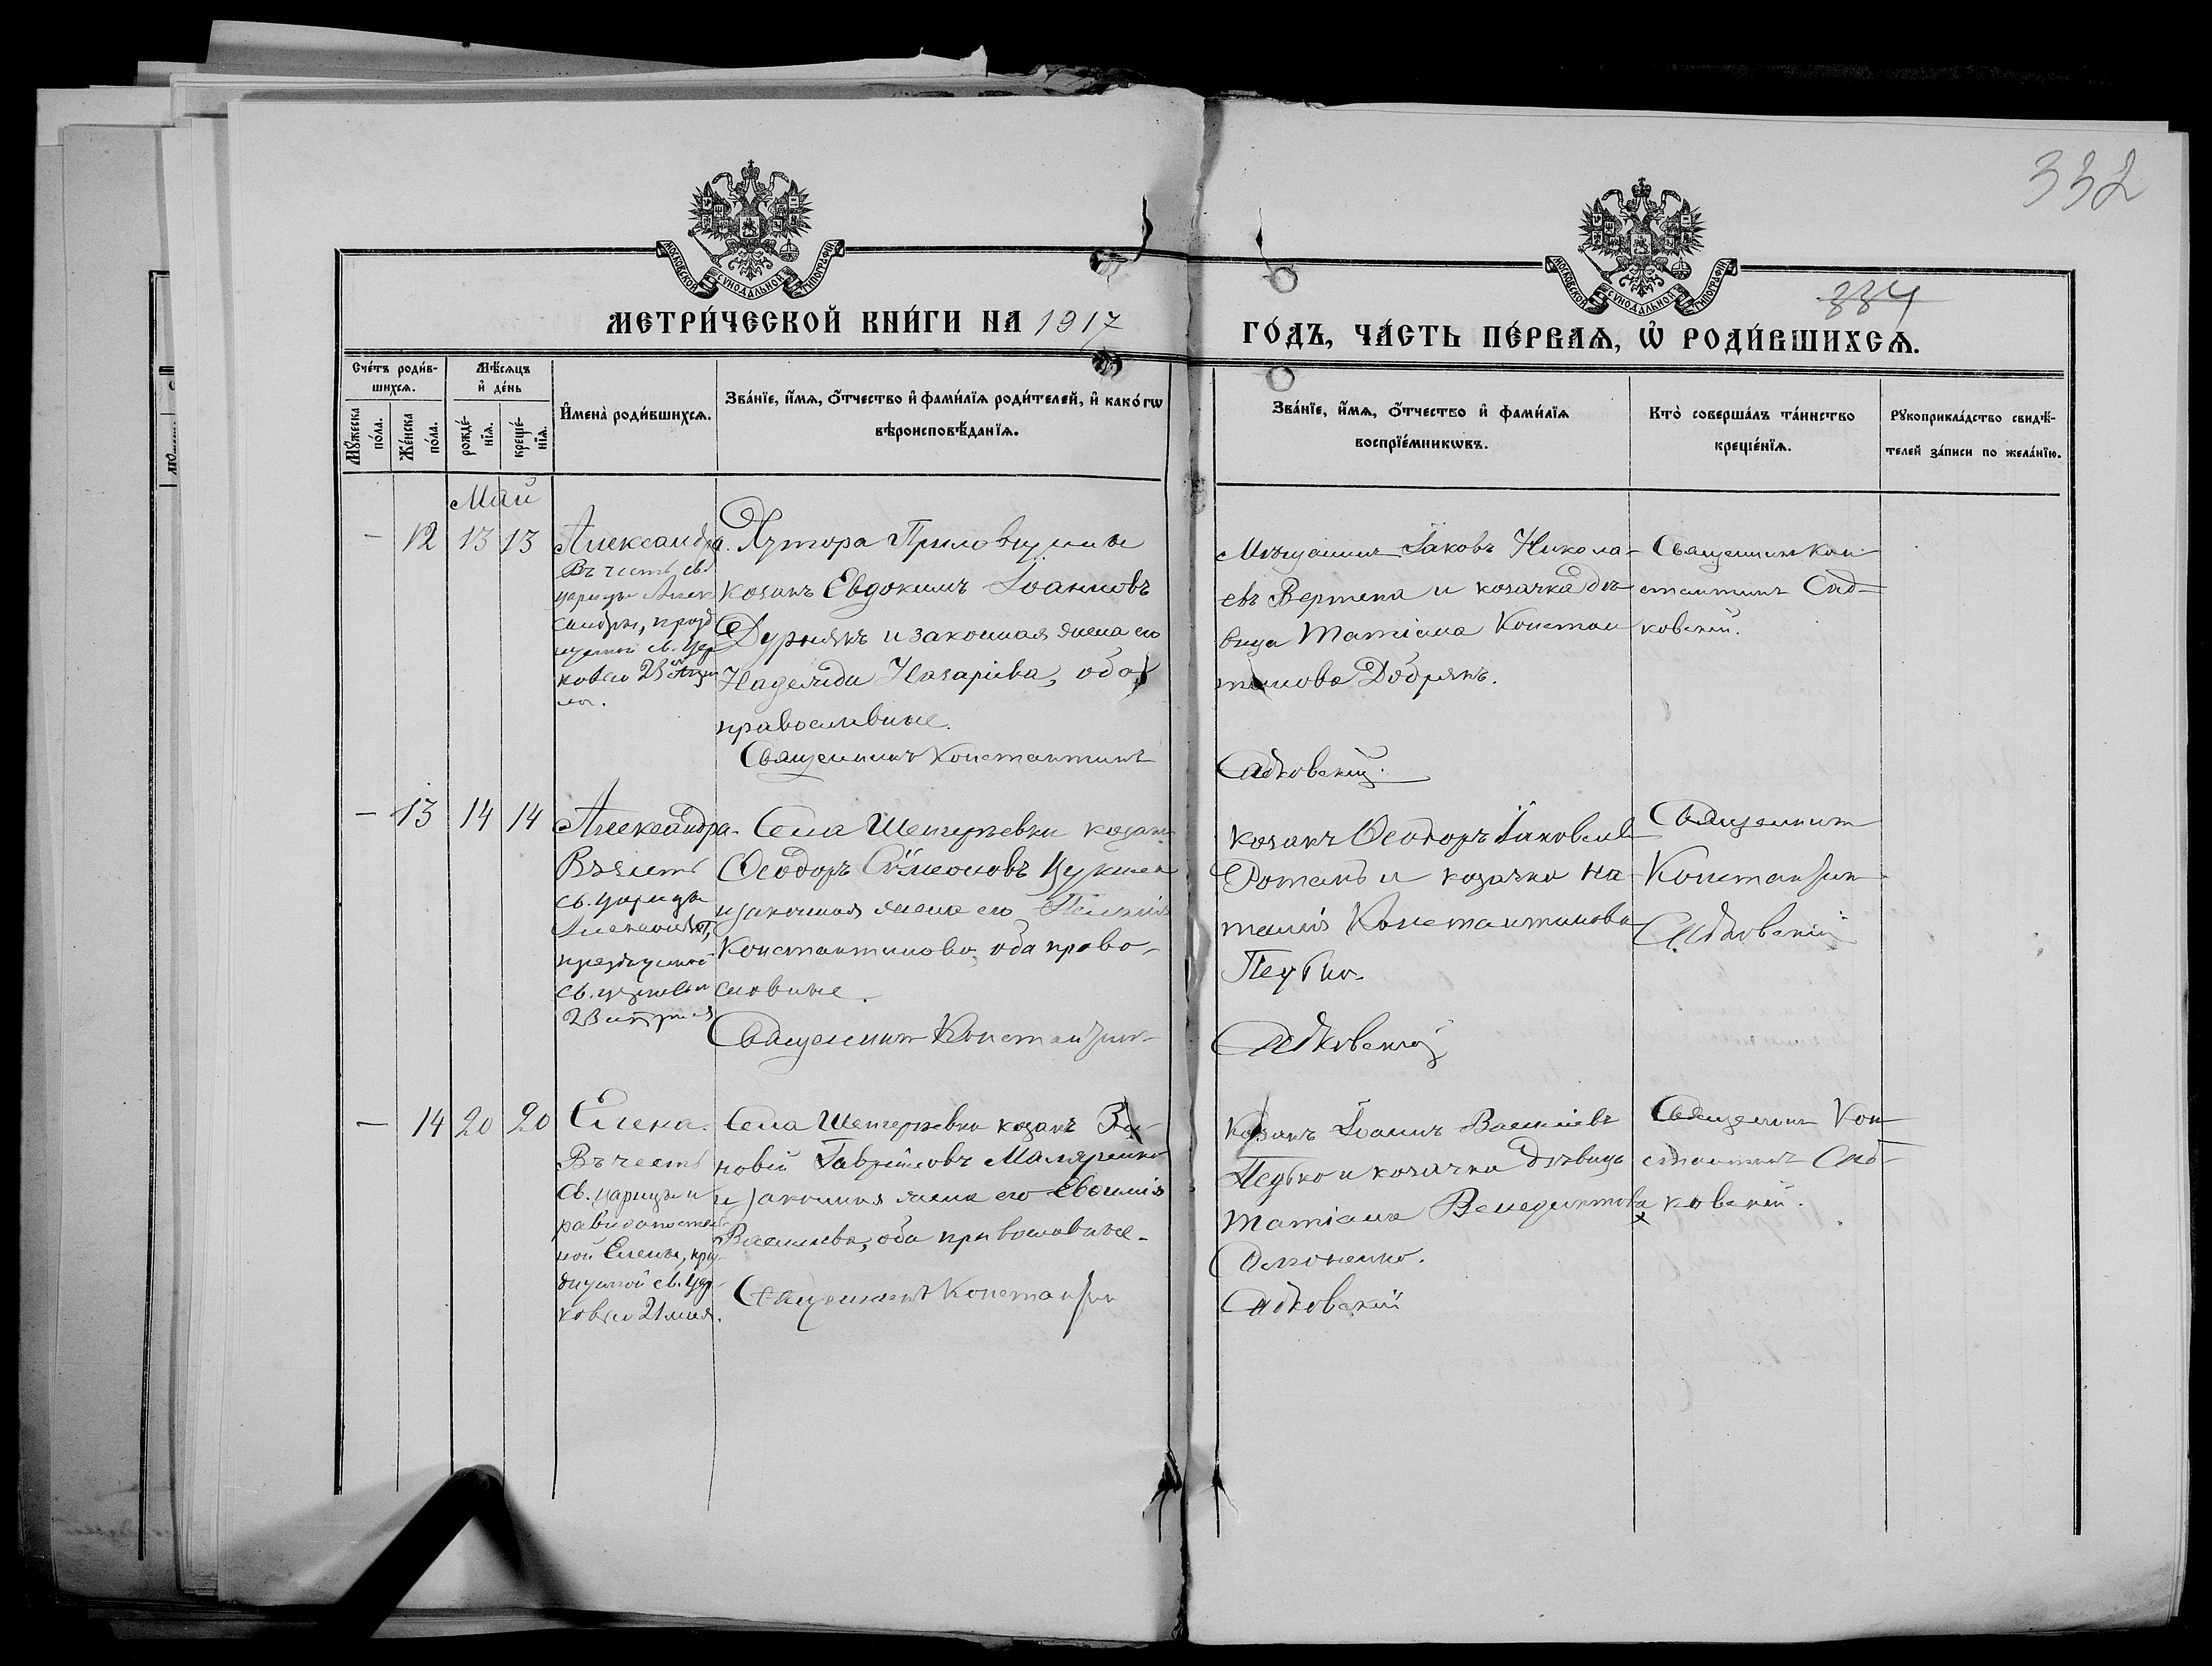 332
МОСКОВСКОЙ СѴНОДАЛЬНОЙ ТИПОГРАФІИ
МОСКОВСКОЙ СѴНОДАЛЬНОЙ ТИПОГРАФІИ
334
МЕТРИ́ЧЕСКОЙ КНИ́ГИ НА 1917
ГО́ДЪ, ЧА́СТЬ ПЕ́РВАѦ, Ѡ҆ РОДИ́ВШИХСѦ.
Сче́тъ роди́в-
шихсѧ.
Мꙋ́жеска по́ла.
Же́нска по́ла.
Мѣ́сѧцъ
и҆ де́нь
рожде́-
нїѧ.
креще́-
нїѧ.
И҆мена̀ роди́вшихсѧ.
Зва́нїе, и҆́мѧ, ѻ҆́тчество и҆ фами́лїѧ роди́телей, и҆ како́гѡ
вѣроисповѣ́данїѧ.
Зва́нїе, и҆́мѧ, ѻ҆́тчество и҆ фами́лїѧ
воспрїе́мникѡвъ.
Кто̀ соверша́лъ та́инство
креще́нїѧ.
Рꙋкоприкла́дство свидѣ́-
телей за́писи по жела́нїю.
Май
- 12 13 13
Александра.
Въ честь св.
царицы Алек
сандры, празд
нуемой св. Цер
ковію 23 Апрѣ
ля.
Хутора
козакъ Евдокимъ Іоанновъ
Дурнякъ и законная жена его
Надежда Назаріева, оба
православные.
Священникъ Константинъ
Мѣщанинъ Іаковъ Никола-
евъ Вертепа и козачка дѣ-
вица Татіана Констан
тинова Добрякъ.
Садковскій.
Священникъ Кон-
стантинъ Сад-
ковскій.
- 13 14 14
Александра.
Въ честь
св. царицы
празднуемой
св. церковью
23 апрѣля
Села козакъ
Ѳеодоръ Сѵмеоновъ
и законная жена его
Константинова, оба право-
славные.
Священникъ Константинъ
Козакъ Ѳеодоръ Іаковлевъ
и козачка На-
талія Константинова
Педько.
Садковскій
Священникъ
Константинъ
Садковскій
- 14 20 20
Елена.
Въ честь
св. царицы и
равноапостоль
ной Елены, пра
зднуемой св. Цер-
ковью 21 мая.
Села козакъ Зи-
новій Гавріиловъ Маляренко
и законная жена его Евѳимія
Василіева, оба православные.
Священникъ Константинъ
Козакъ Іоаннъ Василіевъ
Педько и козачка дѣвица
Татіана Венедиктова
Садковскій
Священникъ Кон-
стантинъ Сад-
ковскій.